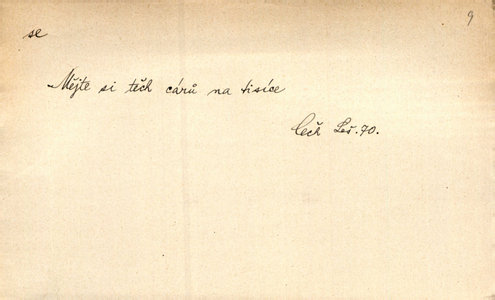 9
se
Mějte si těch cárů na tisíce
Čech Leš.70.